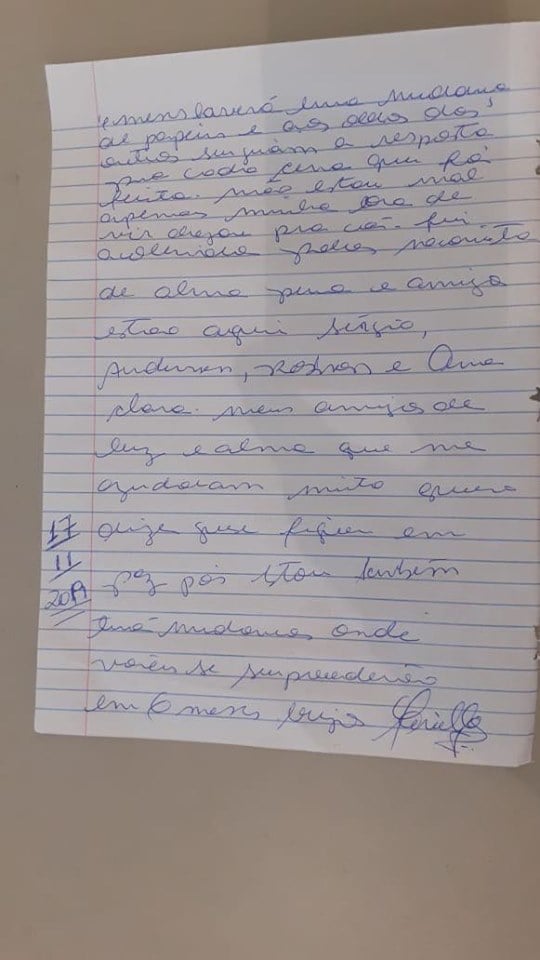 6 meses haverá uma mudança
de papeis e aos olhos dos
outros surgiram a resposta
pra cada cena que foi
feita. não estou mal
apenas minha ora de
vir chegou pra cá. fui
acolhida pelos
de alma pura e amiga
estão aqui Sérgio,
Anderson, e Ana
clara. meus amigos de
luz e alma que me
ajudaram muito quero
dizer que fiquem em
17
11
2019
paz pós estou também
terá mudanças onde
vocês se surpreenderão
em 6 meses beijos